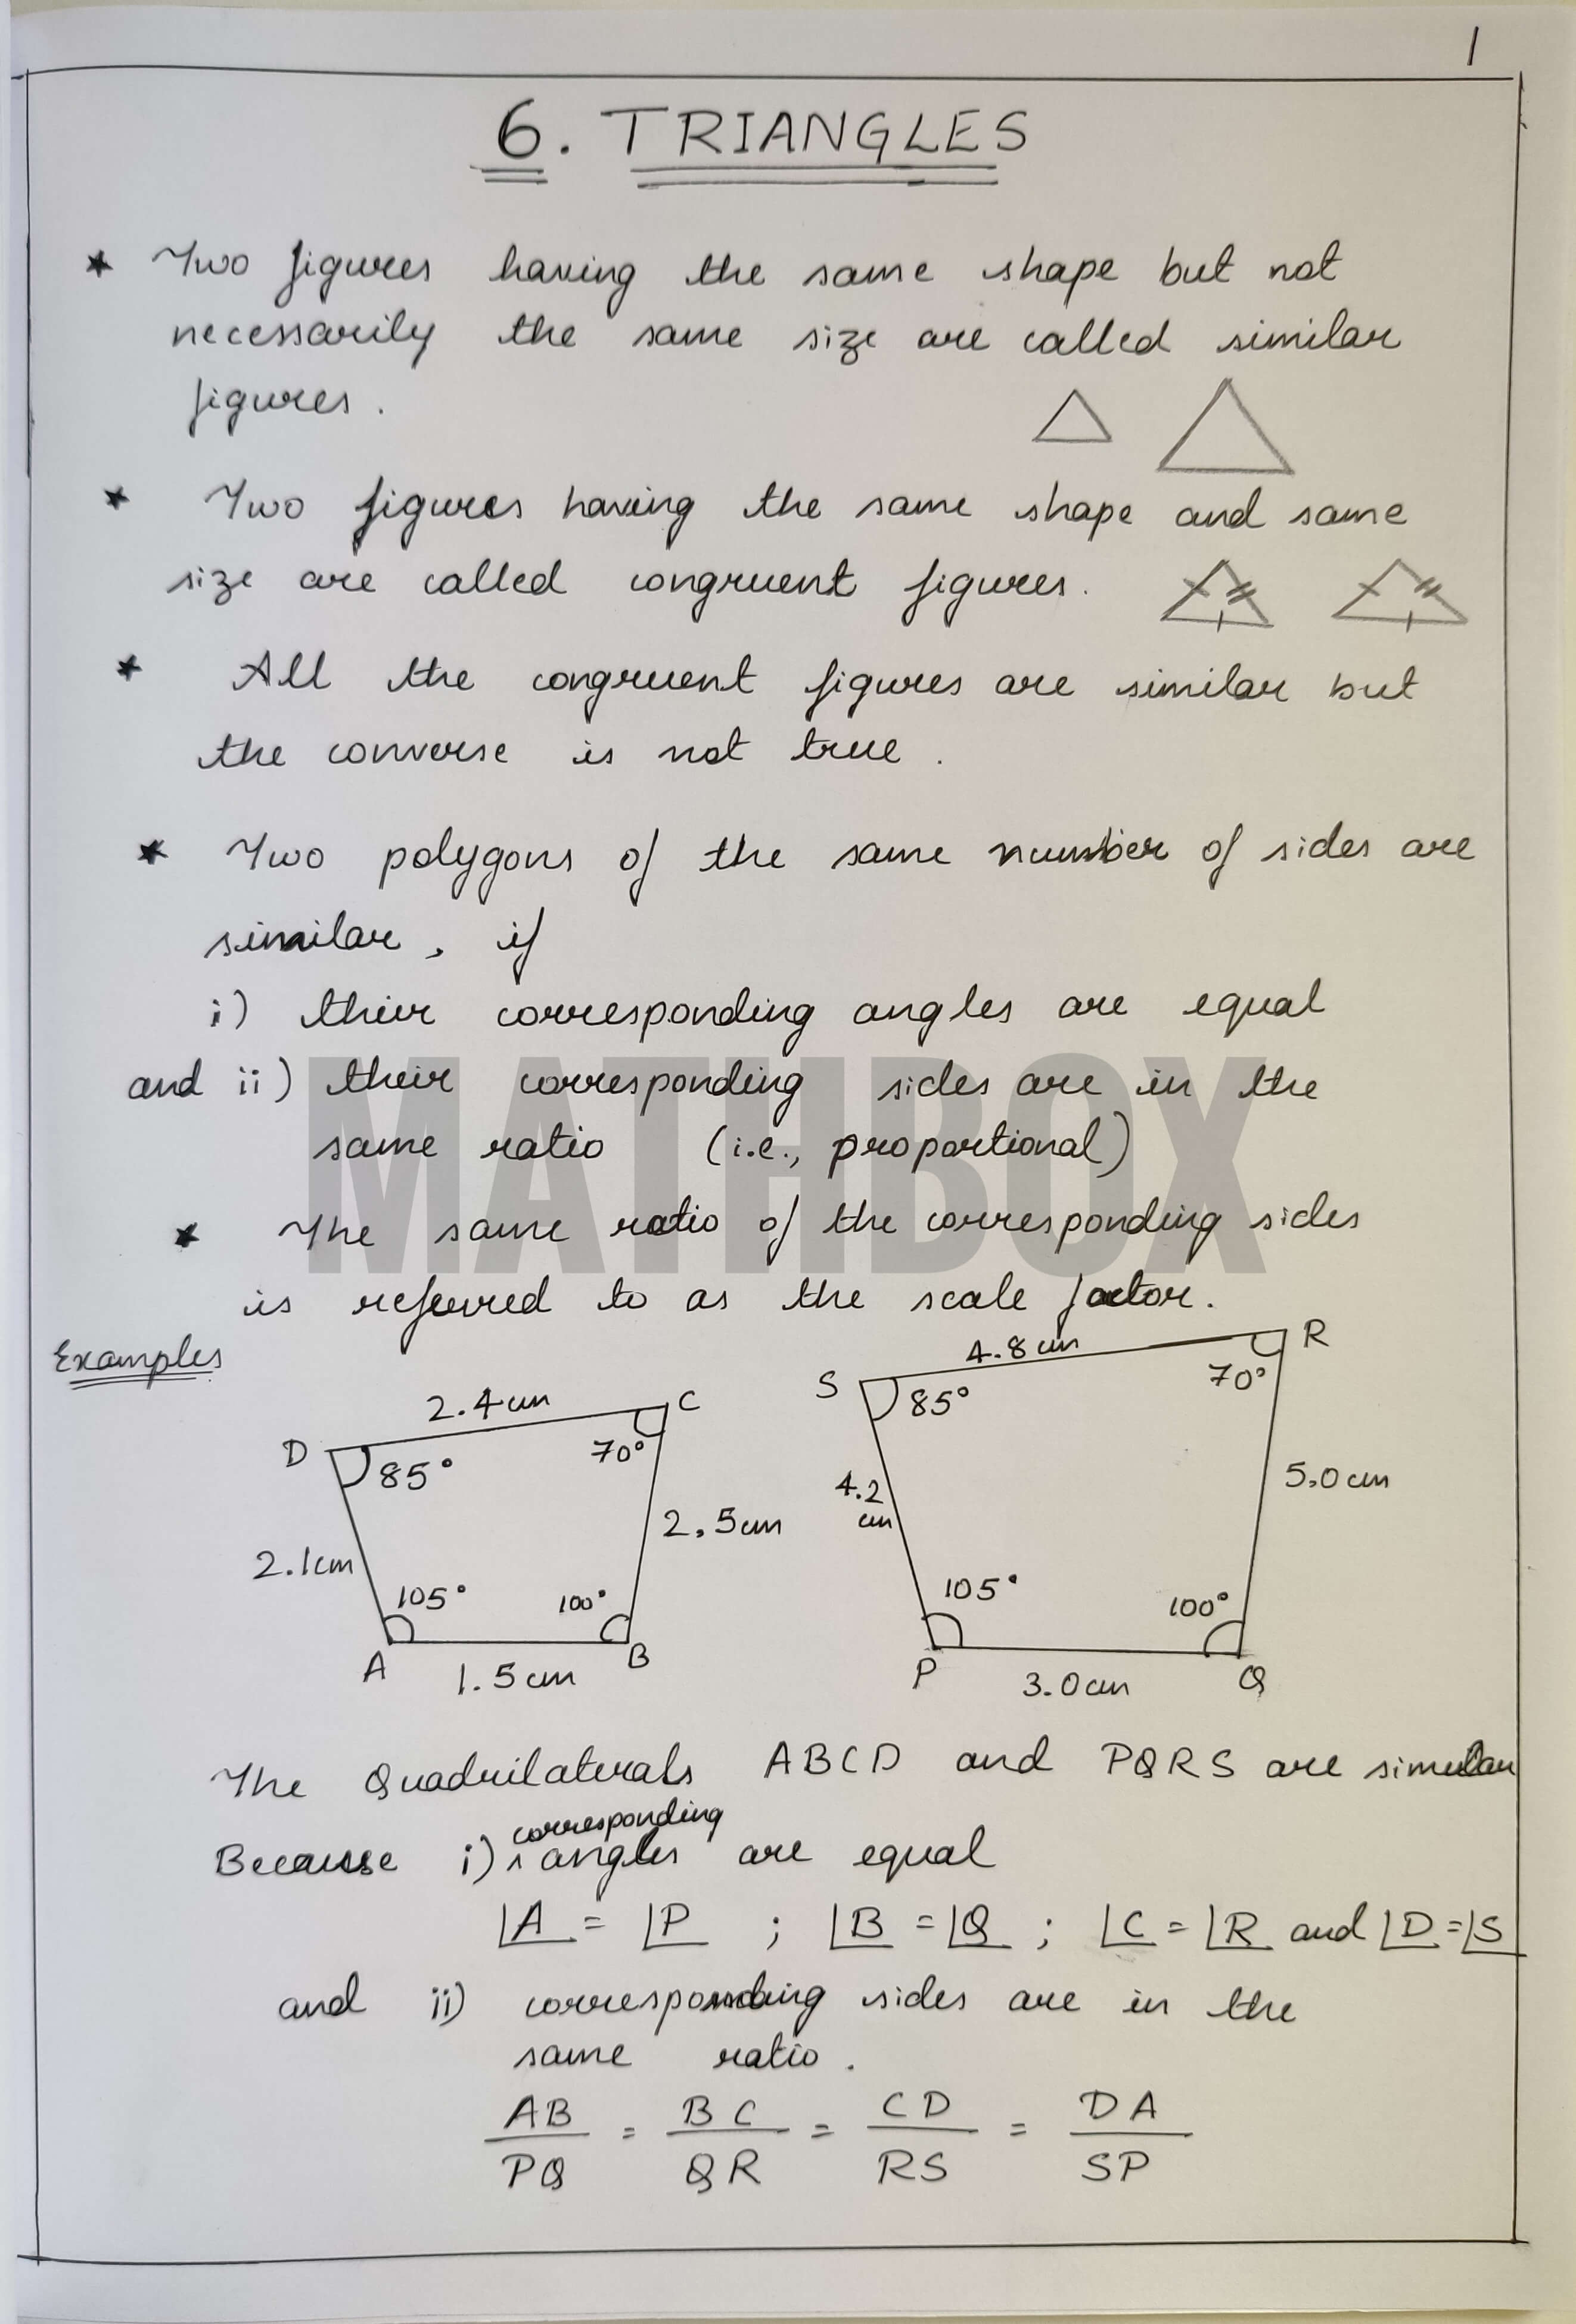 1
6. TRIANGLES
★ Two figures having the same shape but not
necessarily the same size are called similar
figures.
★ Two figures having the same shape and same
size are called congruent figures.
★ All the congruent figures are similar but
the converse is not true.
★ Two polygons of the same number of sides are
similar, if
i) their corresponding angles are equal
and ii) their corresponding sides are in the
same ratio (i.e., proportional)
MATHBOX
★ The same ratio of the corresponding sides
is referred to as the scale factor.
Examples
D 2.4cm C
85° 70°
2.1cm 2.5cm
105° 100°
A 1.5cm B
S 4.8cm R
85° 70°
4.2
cm
5.0cm
105° 100°
P 3.0cm Q
The Quadrilaterals ABCD and PQRS are similar
Because i) corresponding angles are equal
∠A = ∠P ; ∠B = ∠Q ; ∠C = ∠R and ∠D = ∠S
and ii) corresponding sides are in the
same ratio.
AB/PQ = BC/QR = CD/RS = DA/SP